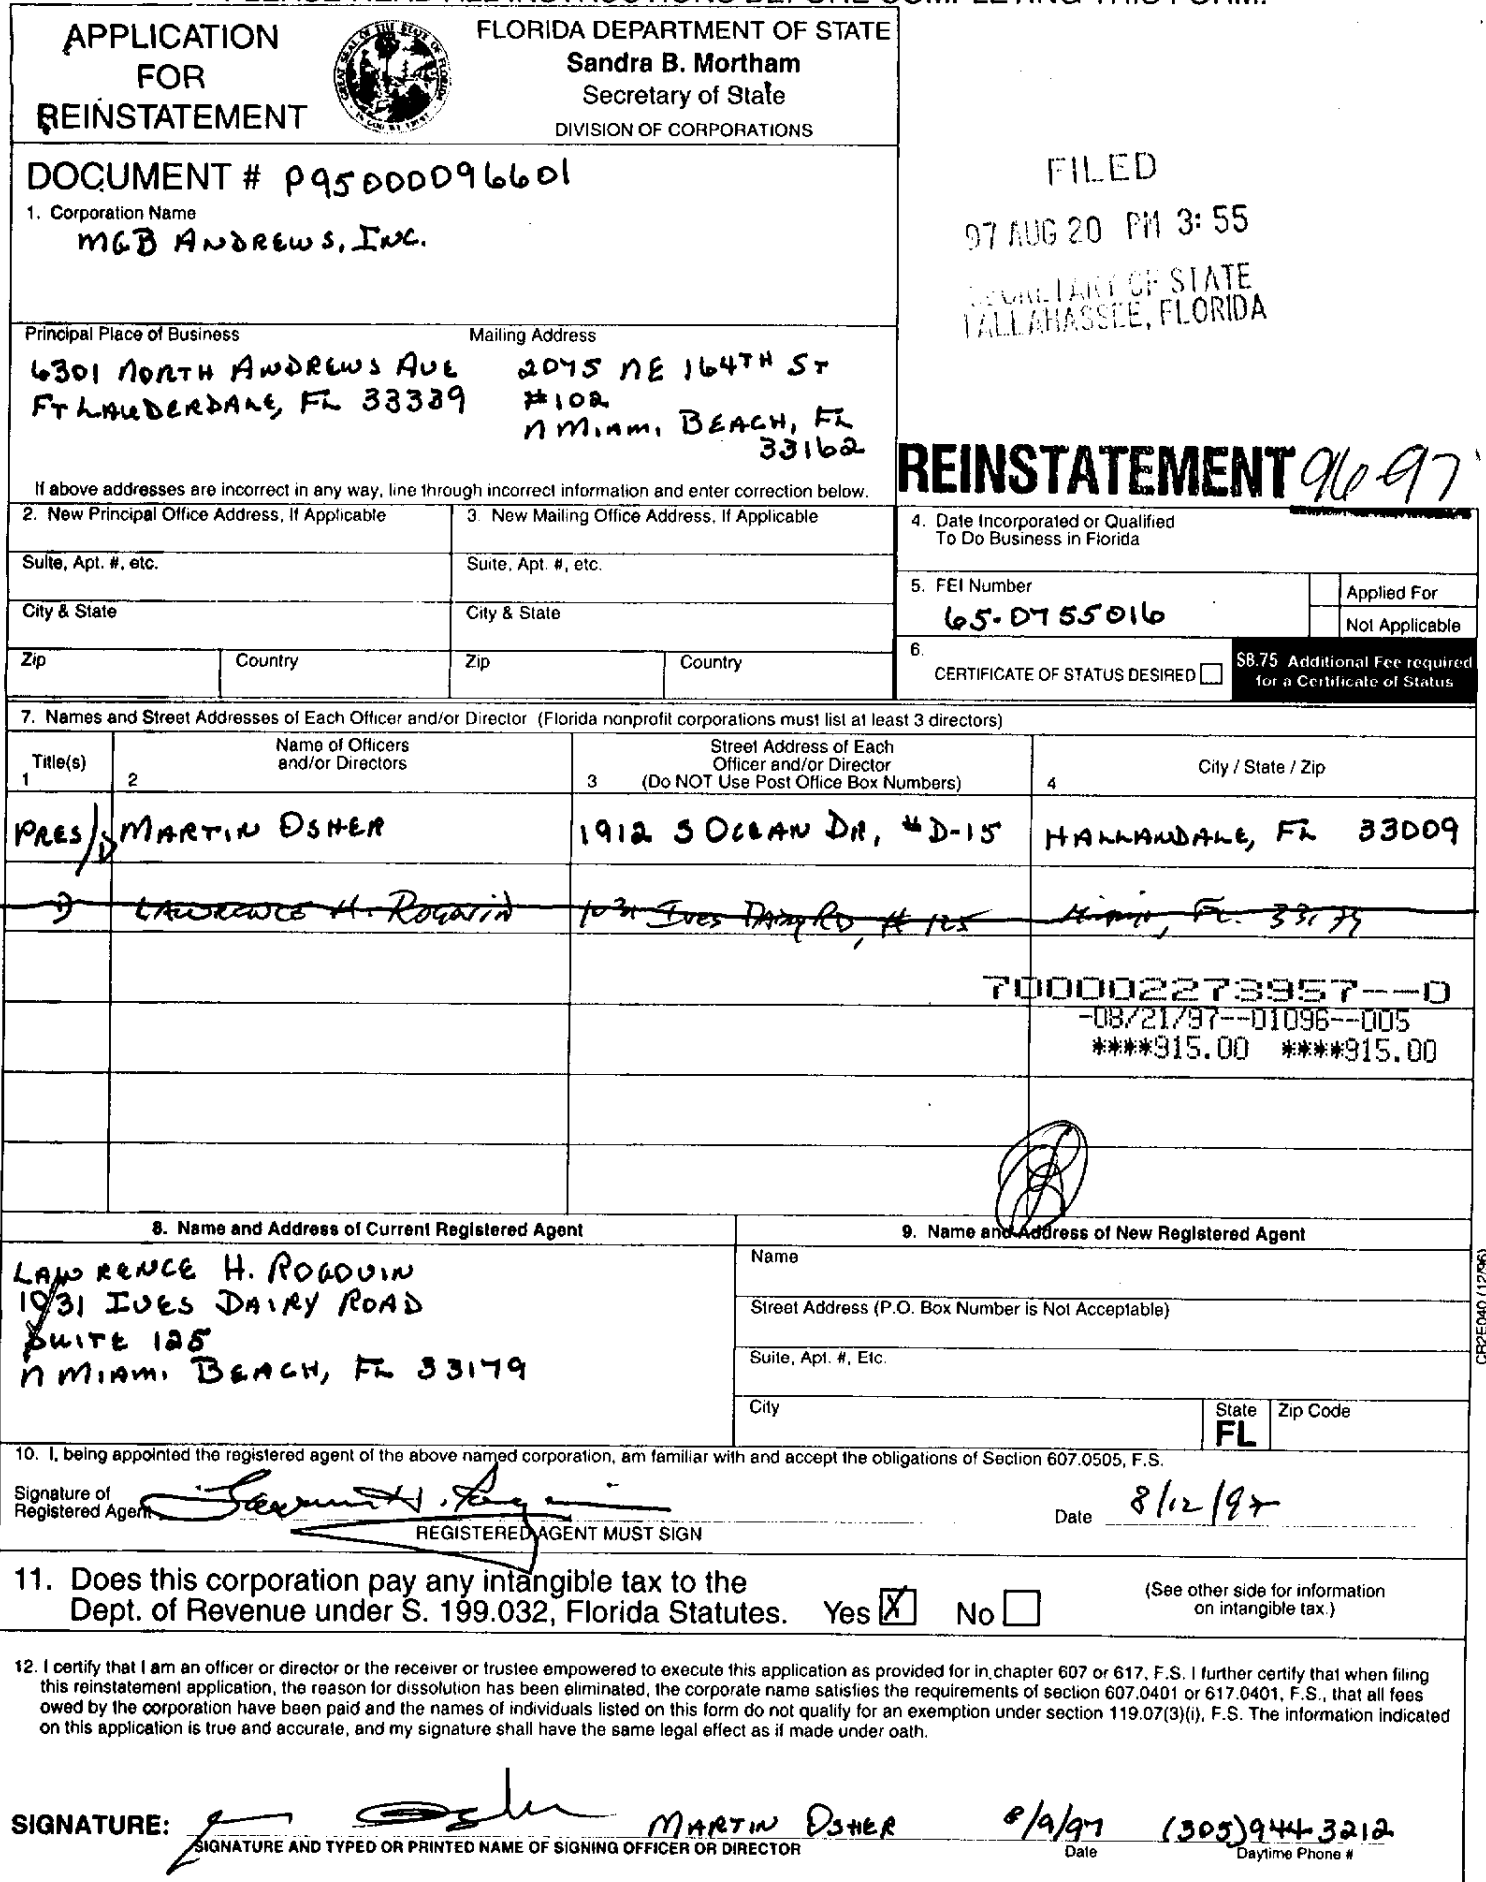 PLEASE READ ALL INSTRUCTIONS BEFORE COMPLETING THIS FORM.
APPLICATION
FOR
REINSTATEMENT
FLORIDA DEPARTMENT OF STATE
Sandra B. Mortham
Secretary of State
DIVISION OF CORPORATIONS
DOCUMENT # P95000096601
1. Corporation Name
MGB ANDREWS, INC.
FILED
97 AUG 20 PM 3:55
SECRETARY OF STATE
TALLAHASSEE, FLORIDA
Principal Place of Business
6301 NORTH ANDREWS AVE
FT LAUDERDALE, FL 33339
Mailing Address
2075 NE 164TH ST
#102
N MIAMI BEACH, FL
33162
If above addresses are incorrect in any way, line through incorrect information and enter correction below.
REINSTATEMENT 96-97
2. New Principal Office Address, If Applicable
Suite, Apt. #, etc.
City & State
Zip Country
3. New Mailing Office Address, If Applicable
Suite, Apt. #, etc.
City & State
Zip Country
4. Date Incorporated or Qualified
To Do Business in Florida
5. FEI Number
65-0755016
Applied For
Not Applicable
6.
CERTIFICATE OF STATUS DESIRED
$8.75 Additional Fee required
for a Certificate of Status
7. Names and Street Addresses of Each Officer and/or Director (Florida nonprofit corporations must list at least 3 directors)
Title(s)
1
Name of Officers
and/or Directors
2
Street Address of Each
Officer and/or Director
3 (Do NOT Use Post Office Box Numbers)
4 City / State / Zip
PRES/D MARTIN OSHER 1912 S OCEAN DR, #D-15 HALLANDALE, FL 33009
D LAWRENCE H. ROGOVIN 1031 IVES DAIRY RD, # 125 Miami, FL. 33179
700002273957--0
-08/21/97--01096--005
****915.00 ****915.00
8. Name and Address of Current Registered Agent
LAWRENCE H. ROGOUIN
1031 IVES DAIRY ROAD
SUITE 125
N MIAMI BEACH, FL 33179
9. Name and Address of New Registered Agent
Name
Street Address (P.O. Box Number is Not Acceptable)
Suite, Apt. #, Etc.
City
State
FL
Zip Code
CR2E040 (12/96)
10. I, being appointed the registered agent of the above named corporation, am familiar with and accept the obligations of Section 607.0505, F.S.
Signature of
Registered Agent
REGISTERED AGENT MUST SIGN
Date 8/12/97
11. Does this corporation pay any intangible tax to the
Dept. of Revenue under S. 199.032, Florida Statutes. Yes X No
(See other side for information
on intangible tax.)
12. I certify that I am an officer or director or the receiver or trustee empowered to execute this application as provided for in chapter 607 or 617, F.S. I further certify that when filing
this reinstatement application, the reason for dissolution has been eliminated, the corporate name satisfies the requirements of section 607.0401 or 617.0401, F.S., that all fees
owed by the corporation have been paid and the names of individuals listed on this form do not qualify for an exemption under section 119.07(3)(i), F.S. The information indicated
on this application is true and accurate, and my signature shall have the same legal effect as if made under oath.
SIGNATURE: MARTIN OSHER 8/9/97 (305)944-3212
SIGNATURE AND TYPED OR PRINTED NAME OF SIGNING OFFICER OR DIRECTOR
Date
Daytime Phone #